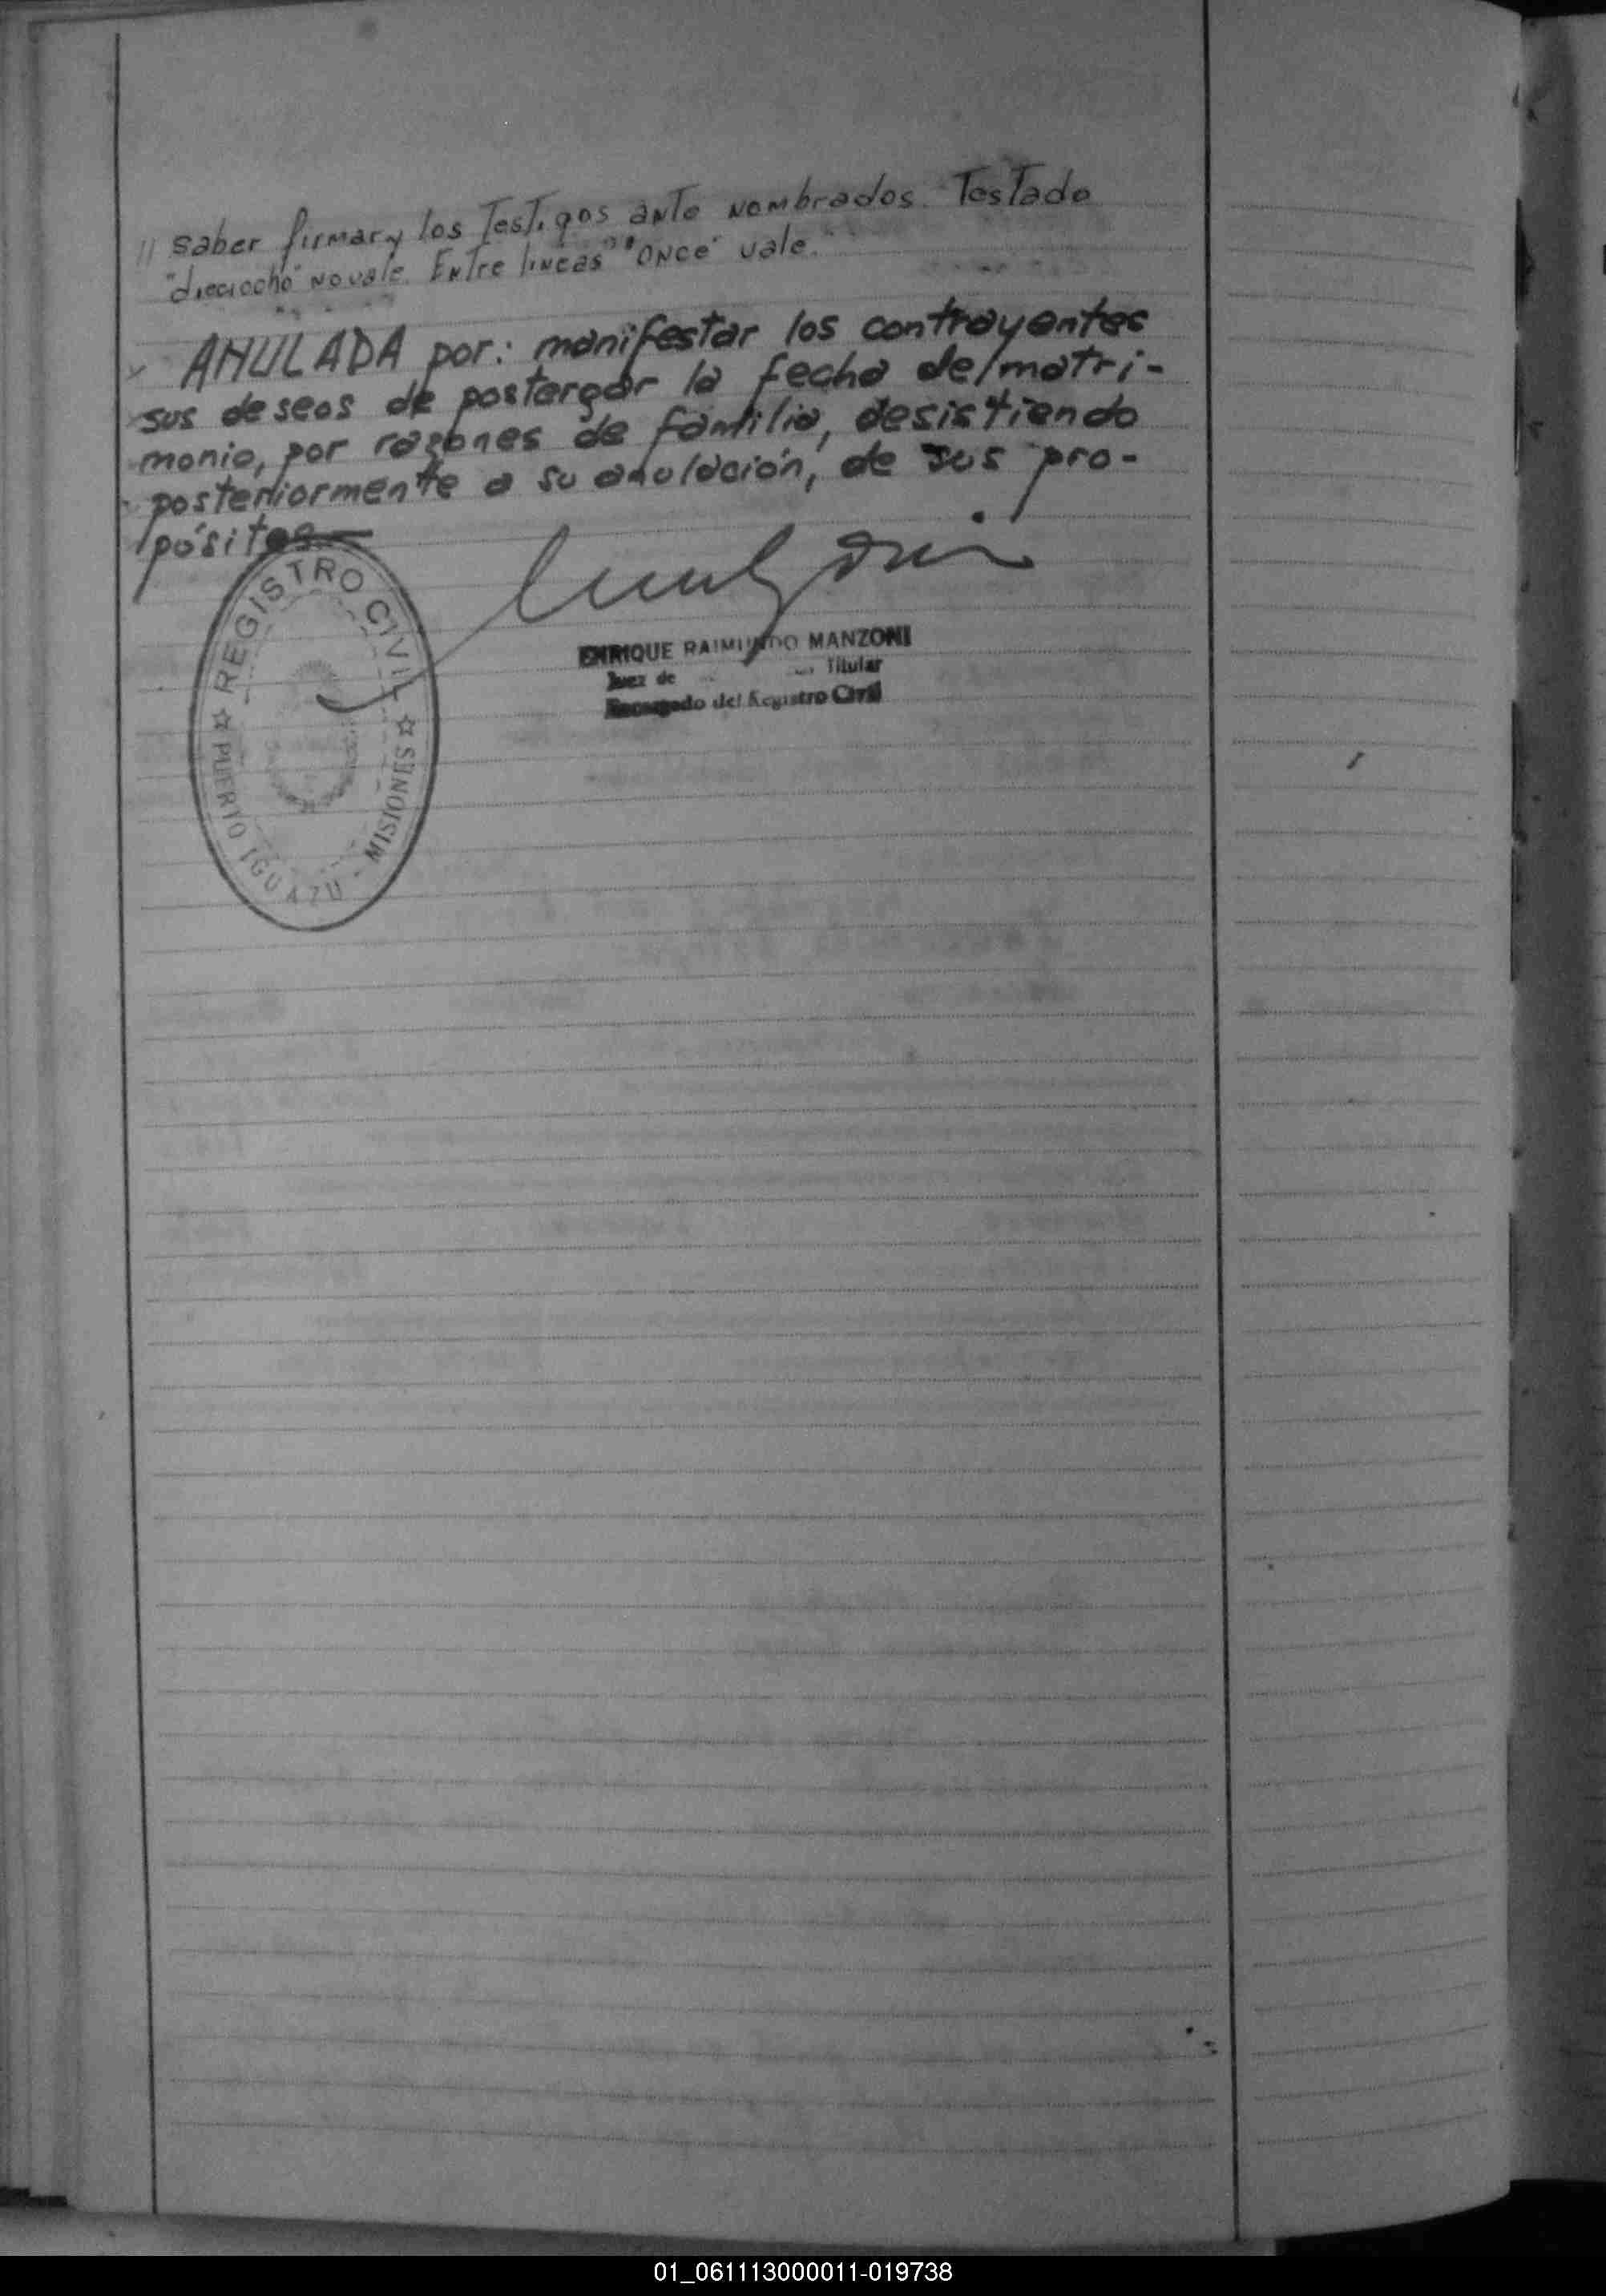 // saber firmar y los Testigos ante nombrados. Testado
"dieciocho" no vale. Entre lineas "once" vale.
ANULADA por: manifestar los contrayentes
sus deseos de postergar la fecha del matri-
monio, por razones de familia, desistiendo
posteriormente a su anulación, de sus pro-
pósitos.—
REGISTRO CIVIL
PUERTO IGUAZU - MISIONES
ENRIQUE RAIMUNDO MANZONI
Juez de Titular
Encargado del Registro Civil
01_061113000011-019738